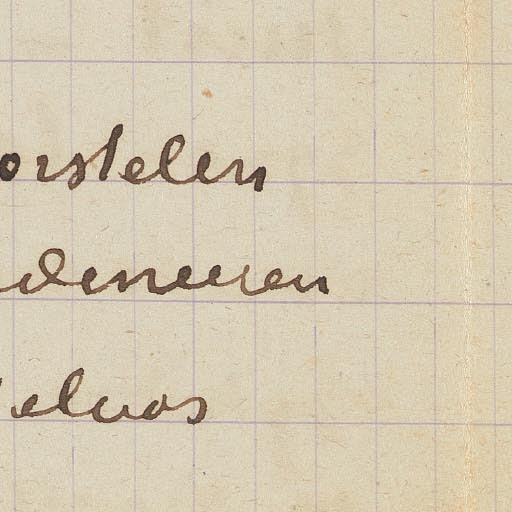 orstelen
deneeren
elvos